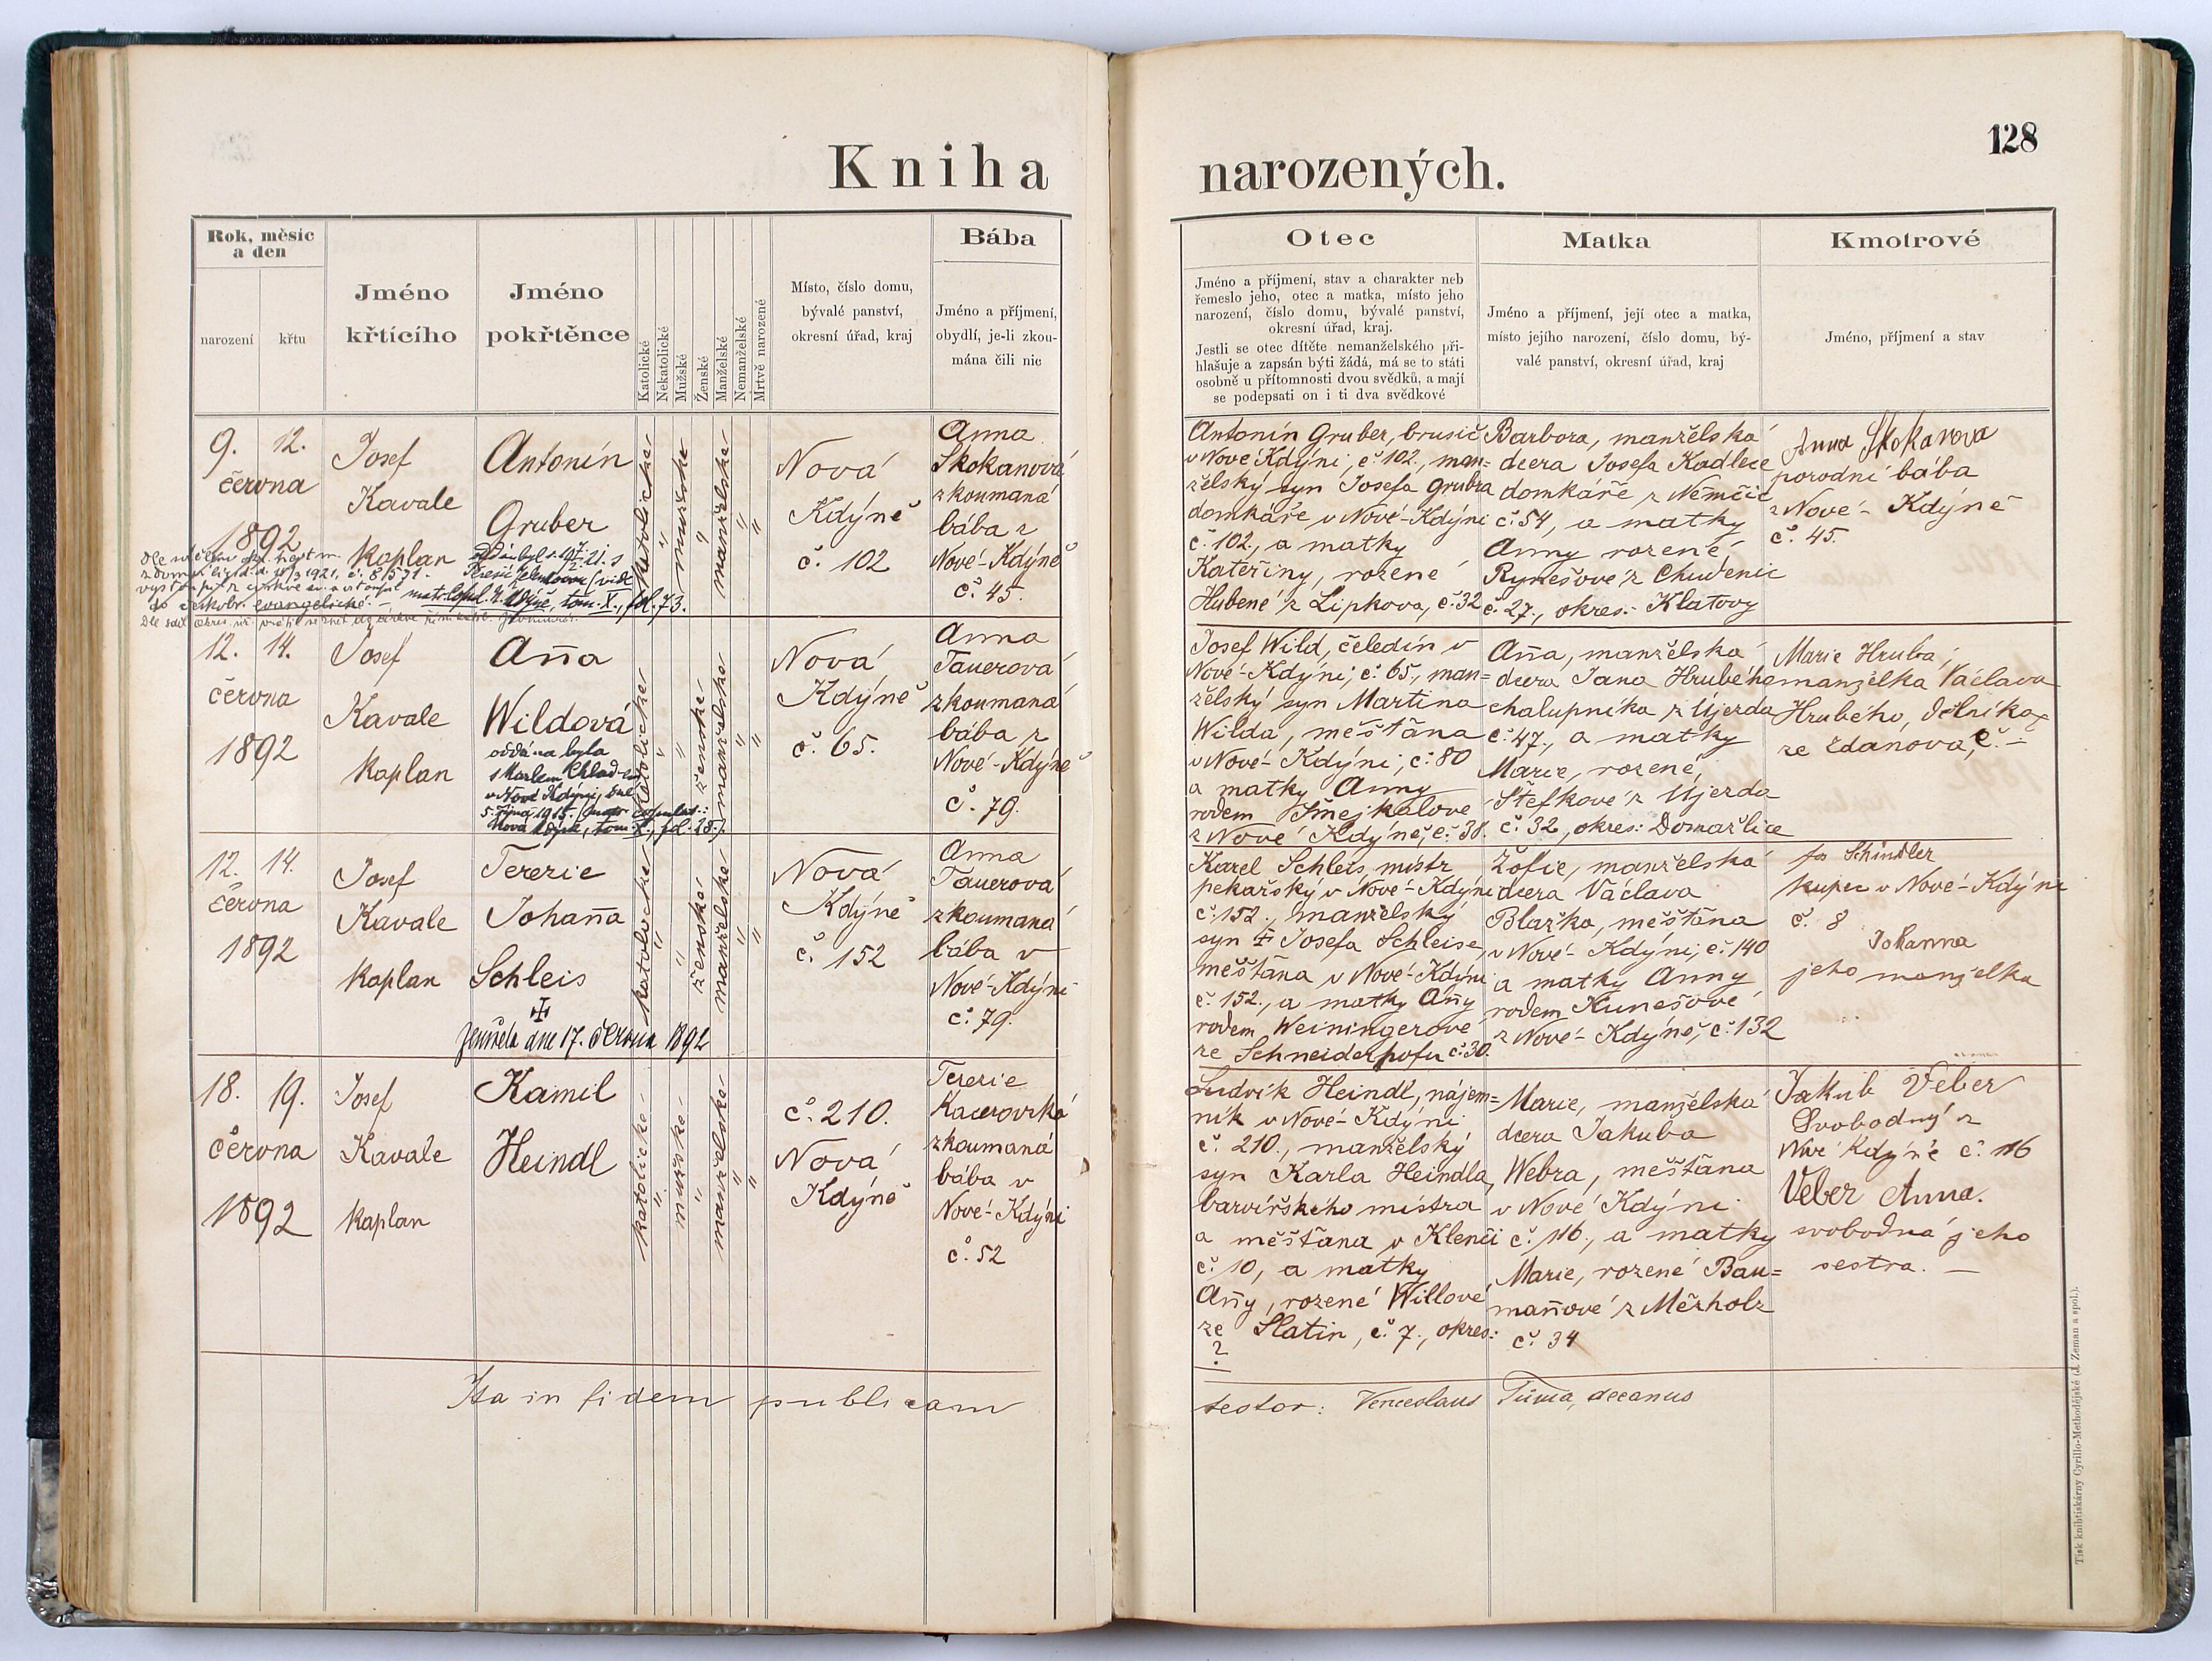 128
Kniha narozených.
Rok, měsíc
a den
narození
křtu
Jméno
křtícího
Jméno
pokřtěnce
Katolické
Nekatolické
Mužské
Ženské
Manželské
Nemanželské
Mrtvě narozené
Místo, číslo domu,
bývalé panství,
okresní úřad, kraj
Bába
Jméno a příjmení,
obydlí, je-li zkou-
mána čili nic
Otec
Jméno a příjmení, stav a charakter neb
řemeslo jeho, otec a matka, místo jeho
narození, číslo domu, bývalé panství,
okresní úřad, kraj.
Jestli se otec dítěte nemanželského při-
hlašuje a zapsán býti žádá, má se to státi
osobně u přítomnosti dvou svědků, a mají
se podepsati on i ti dva svědkové
Matka
Jméno a příjmení, její otec a matka,
místo jejího narození, číslo domu, bý-
valé panství, okresní úřad, kraj
Kmotrové
Jméno, příjmení a stav
9. 12.
června
1892
Josef
Kavale
kaplan
Antonín
Gruber
katolické
"
mužské
"
manželské
"
"
Nová
Kdýně
č. 102
Anna
Skokanová
zkoumaná
bába z
Nové-Kdýně
č. 45.
Antonín Gruber, brusič
v Nové Kdýni, č. 102., man=
želský syn Josefa Grubra
domkáře v Nové-Kdýni
č. 102., a matky
Kateřiny, rozené
Hubené z Lipkova, č. 32
Barbora, manželská
dcera Josefa Kadlece
domkáře z Němčic
č. 54, a matky
Anny rozené
Rymešové z Chudenic
č. 27., okres.: Klatovy
Anna Skokanova
porodní bába
z Nové-Kdýně
č. 45.
evangelické. — matr. copul. N. Kdýně, tom. X., fol. 73.
12. 14.
června
1892
Josef
Kavale
kaplan
Anna
Wildová
oddána byla
s Karlem
v Nové Kdýni, dne
5. října 1915. (matr. copulat.:
Nová Kdýně, tom. X., fol. 25.)
katolické
"
"
ženské
manželské
"
"
Nová
Kdýně
č. 65.
Anna
Tauerová
zkoumaná
bába z
Nové-Kdýně
č. 79.
Josef Wild, čeledín v
Nové-Kdýni, č. 65., man=
želský syn Martina
Wilda, měšťana
v Nové-Kdýni, č. 80
a matky Anny
rodem Smejkalové
z Nové Kdýně, č. 38.
Anna, manželská
dcera Jana Hrubého
chalupníka z Újezda
č. 47., a matky
Marie, rozené
Štefkové z Újezda
č. 32, okres: Domažlice
Marie Hrubá,
manželka Václava
Hrubého, dělníka
ze Zdanova, č. —
12. 14.
června
1892
Josef
Kavale
kaplan
Terezie
Johanna
Schleis
Zemřela dne 17. června 1892
katolické
"
"
ženské
manželské
"
"
Nová
Kdýně
č. 152
Anna
Tauerová
zkoumaná
bába v
Nové-Kdýni
č. 79.
Karel Schleis, mistr
pekařský v Nové-Kdýni
č. 152., manželský
syn ‡ Josefa Schleise,
měšťana v Nové-Kdýni
č. 152., a matky Anny
rodem Weiningerové
ze Schneiderhofu č. 30.
Žofie, manželská
dcera Václava
Blažka, měšťana
v Nové-Kdýni, č. 140
a matky Anny
rodem Kunešové
z Nové-Kdýně, č. 132
Jos Schindler
kupec v Nové-Kdýni
č. 8
Johanna
jeho manželka
18. 19.
června
1892
Josef
Kavale
kaplan
Kamil
Heindl
katolické
"
mužské
"
manželské
"
"
č. 210.
Nová
Kdýně
Terezie
Kacerovská
zkoumaná
bába v
Nové-Kdýni
č. 52
Ludvík Heindl, nájem=
ník v Nové-Kdýni
č. 210., manželský
syn Karla Heindla,
barvířského mistra
a měšťana v Klenčí
č. 10, a matky
Anny, rozené Willové
ze Slatin, č. 7., okres:
?
Marie, manželská
dcera Jakuba
Webra, měšťana
v Nové Kdýni
č. 116., a matky
Marie, rozené Bau=
mannové z Měrholz
č. 34
Jakub Veber
Svobodný z
Nové Kdýně č. 116
Veber Anna.
svobodná jeho
sestra. —
Ita in fidem publicam
testor: Venceslaus Tůma, decanus
Tisk knihtiskárny Cyrillo-Methodějské (J. Zeman a spol.).